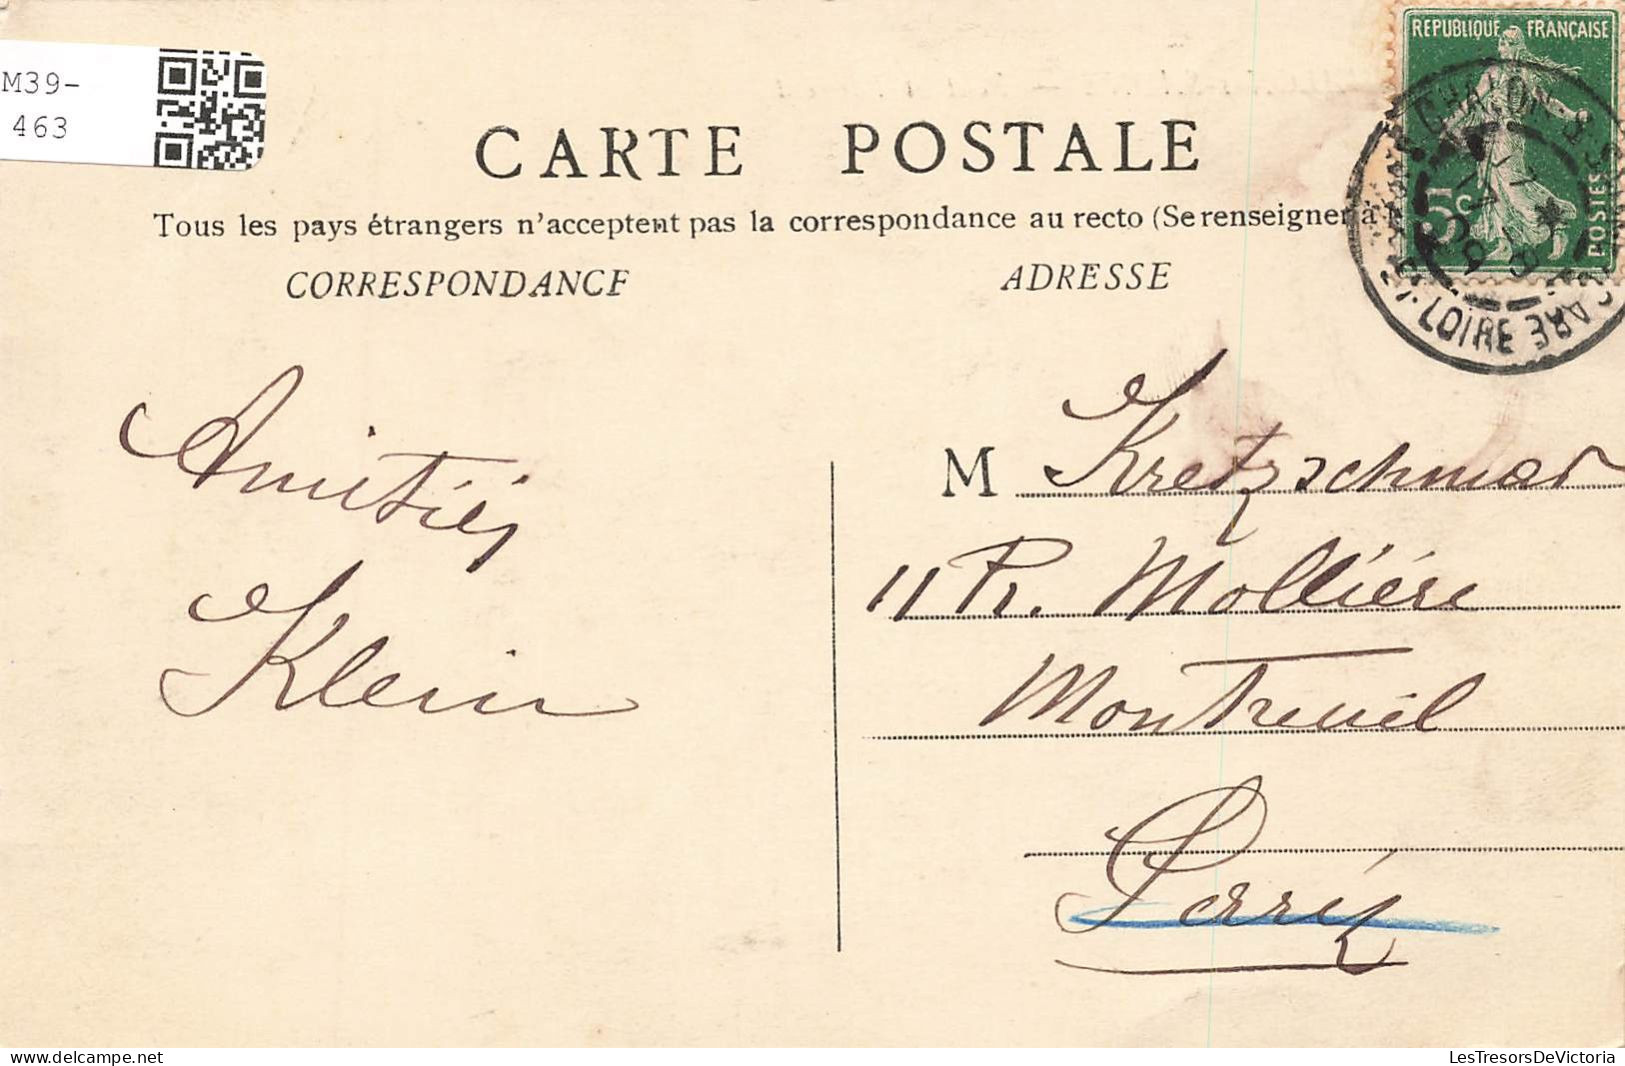 M39-
463
REPUBLIQUE FRANÇAISE
5c
POSTES
CHALON S SAONE GARE
ET-LOIRE
CARTE POSTALE
Tous les pays étrangers n'acceptent pas la correspondance au recto (Se renseigner à
CORRESPONDANCE
ADRESSE
Amitiés
Klein
M Kretzschmar
11 R. Mollière
Montreuil
delcampe.net
LesTresorsDeVictoria